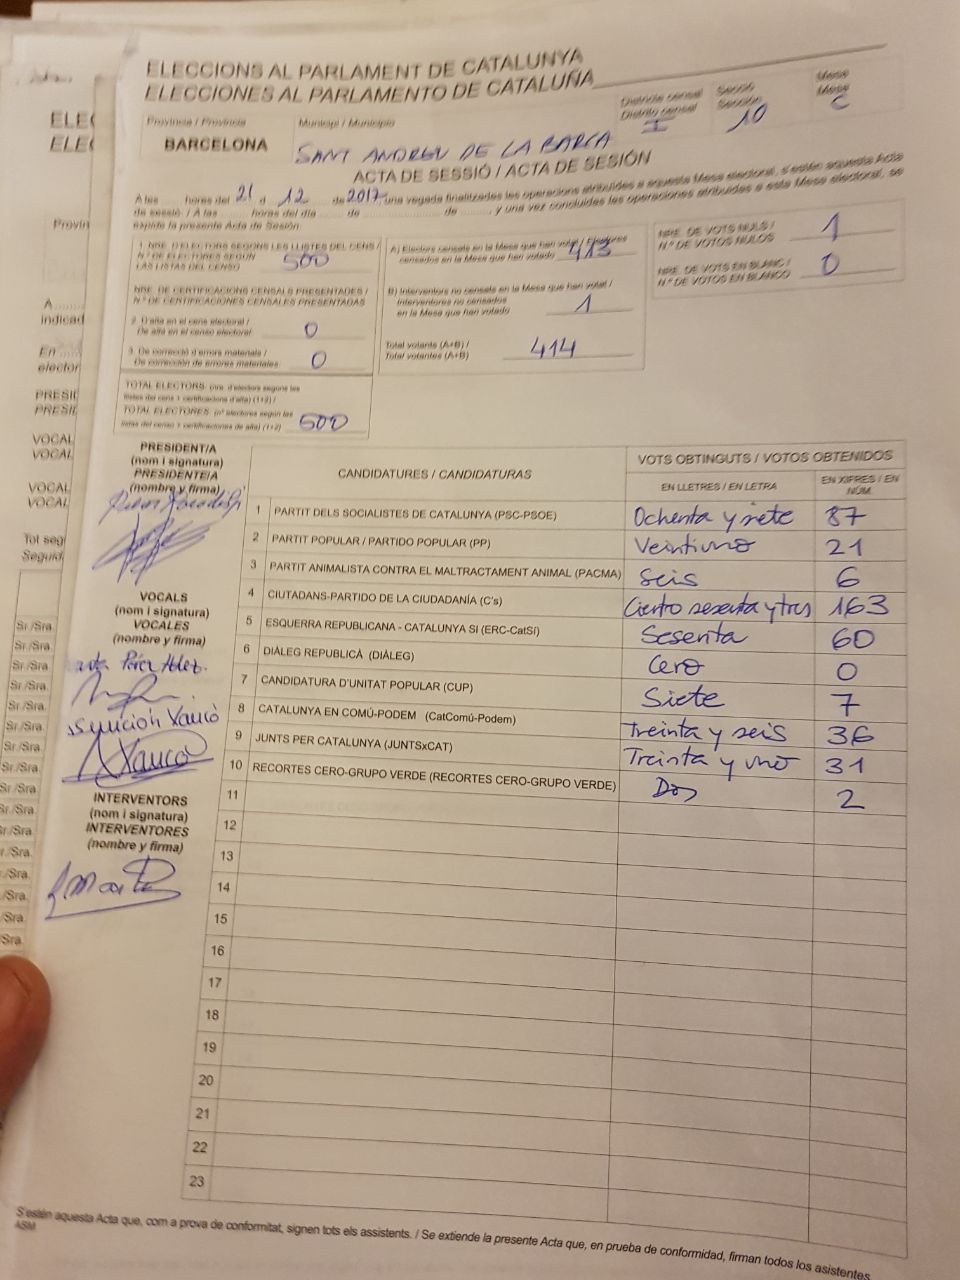 ELECCIONS AL PARLAMENT DE CATALUNYA
ELECCIONES AL PARLAMENTO DE CATALUÑA
Districte censal
Distrito censal
I
Secció
Sección
10
Mesa
Mesa
C
Província / Provincia
BARCELONA
Municipi / Municipio
SANT ANDREU DE LA BARCA
ACTA DE SESSIÓ / ACTA DE SESIÓN
A les ...... hores del 21 d 12 de 2017, una vegada finalitzades les operacions atribuïdes a aquesta Mesa electoral, s'estén aquesta Acta
de sessió. / A las ...... horas del día ...... de ...... de ......, y una vez concluidas las operaciones atribuidas a esta Mesa electoral, se
expide la presente Acta de Sesión.
1. NRE. D'ELECTORS SEGONS LES LLISTES DEL CENS /
N.º DE ELECTORES SEGÚN
LAS LISTAS DEL CENSO
500
NRE. DE CERTIFICACIONS CENSALS PRESENTADES /
N.º DE CERTIFICACIONES CENSALES PRESENTADAS
2. D'alta en el cens electoral /
De alta en el censo electoral
0
3. De correcció d'errors materials /
De corrección de errores materiales
0
TOTAL ELECTORS: (nre. d'electors segons les
llistes del cens + certificacions d'alta) (1+2) /
TOTAL ELECTORES: (nº electores según las
listas del censo + certificaciones de alta) (1+2)
500
A) Electors censats en la Mesa que han votat / Electores
censados en la Mesa que han votado
413
B) Interventors no censats en la Mesa que han votat /
Interventores no censados
en la Mesa que han votado
1
Total votants (A+B) /
Total votantes (A+B)
414
NRE. DE VOTS NULS /
N.º DE VOTOS NULOS
1
NRE. DE VOTS EN BLANC /
N.º DE VOTOS EN BLANCO
0
PRESIDENT/A
(nom i signatura)
PRESIDENTE/A
(nombre y firma)
VOCALS
(nom i signatura)
VOCALES
(nombre y firma)
Pérez
Xaucó
Xaucó
INTERVENTORS
(nom i signatura)
INTERVENTORES
(nombre y firma)
CANDIDATURES / CANDIDATURAS
VOTS OBTINGUTS / VOTOS OBTENIDOS
EN LLETRES / EN LETRA
EN XIFRES / EN
NÚM.
1 PARTIT DELS SOCIALISTES DE CATALUNYA (PSC-PSOE) Ochenta y siete 87
2 PARTIT POPULAR / PARTIDO POPULAR (PP) Veintiuno 21
3 PARTIT ANIMALISTA CONTRA EL MALTRACTAMENT ANIMAL (PACMA) Seis 6
4 CIUTADANS-PARTIDO DE LA CIUDADANÍA (C's) Ciento sesenta y tres 163
5 ESQUERRA REPUBLICANA - CATALUNYA SÍ (ERC-CatSí) Sesenta 60
6 DIÀLEG REPUBLICÀ (DIÀLEG) Cero 0
7 CANDIDATURA D'UNITAT POPULAR (CUP) Siete 7
8 CATALUNYA EN COMÚ-PODEM (CatComú-Podem) Treinta y seis 36
9 JUNTS PER CATALUNYA (JUNTSxCAT) Treinta y uno 31
10 RECORTES CERO-GRUPO VERDE (RECORTES CERO-GRUPO VERDE) Dos 2
11
12
13
14
15
16
17
18
19
20
21
22
23
S'estén aquesta Acta que, com a prova de conformitat, signen tots els assistents. / Se extiende la presente Acta que, en prueba de conformidad, firman todos los asistentes.
ASM